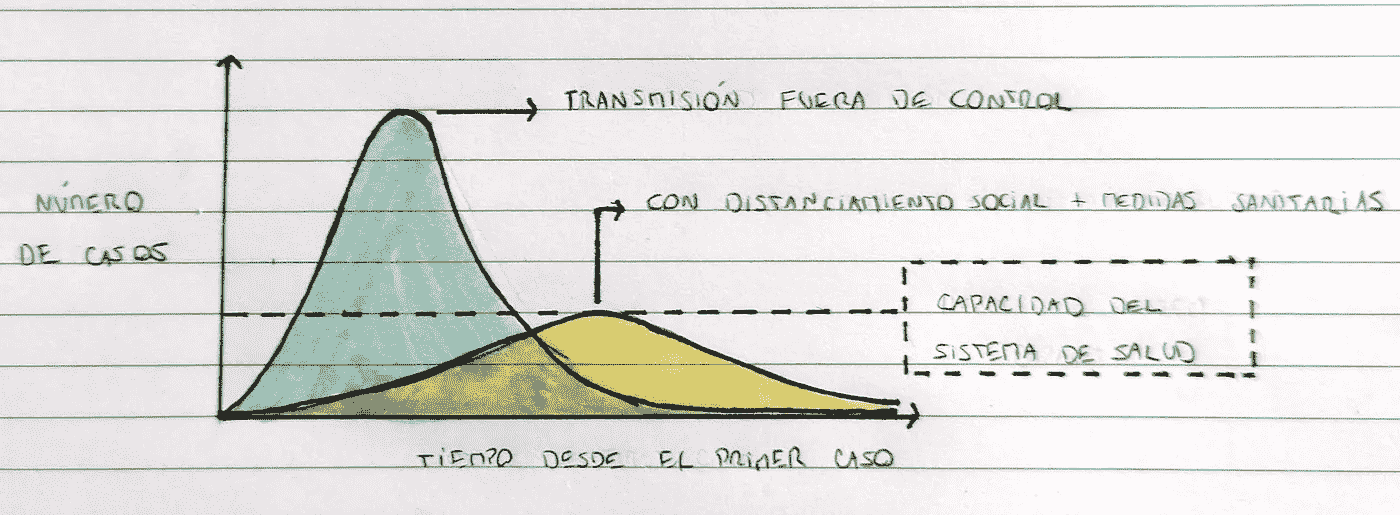 TRANSMISIÓN FUERA DE CONTROL
NÚMERO
DE CASOS
CON DISTANCIAMIENTO SOCIAL + MEDIDAS SANITARIAS
CAPACIDAD DEL
SISTEMA DE SALUD
TIEMPO DESDE EL PRIMER CASO